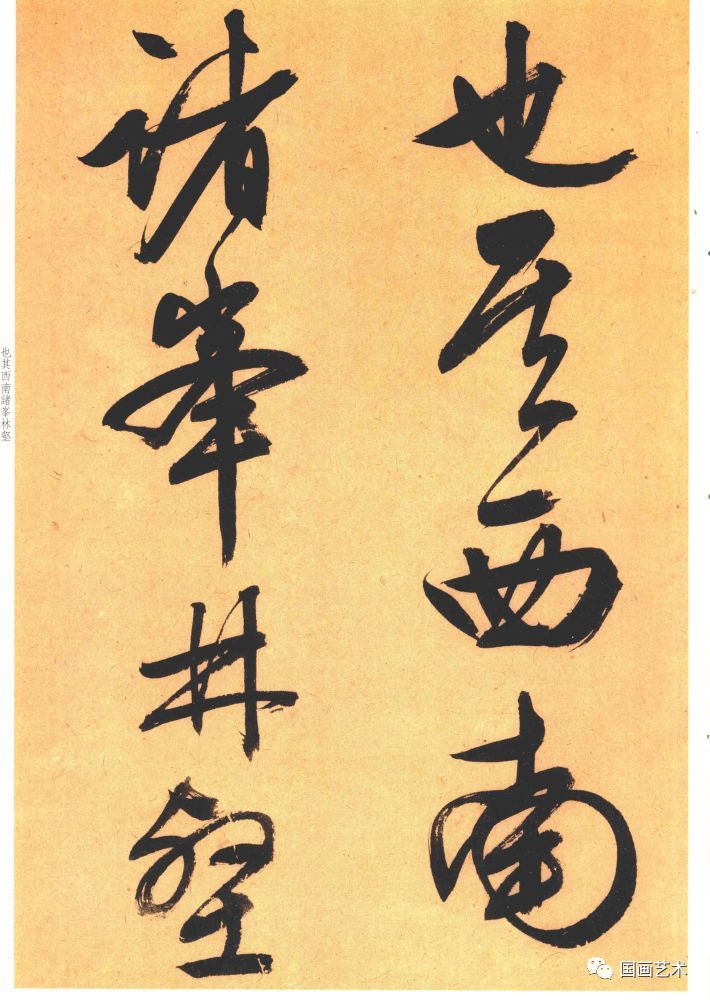 也其西南
諸峯林壑
也其西南諸峯林壑
国画艺术